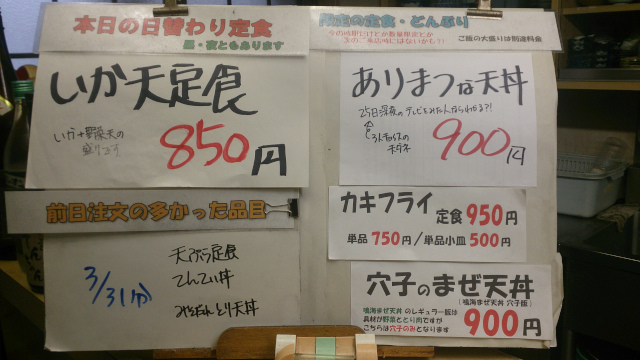 本日の日替わり定食
昼・夜ともあります
いか天定食
いか+野菜天の
盛りです
850円
前日注文の多かった品目
3/31(分)
天ぷら定食
てんてい丼
とり天丼
限定の定食・どんぶり
今の時期だけとか数量限定とか
次のご来店時にはないかも?!
ご飯の大盛りは別途料金
ありまつな天丼
25日深夜のテレビをみた人ならわかる?!
900円
カキフライ
定食 950円
単品 750円/単品小皿 500円
穴子のまぜ天丼
(鳴海まぜ天丼 穴子版)
鳴海まぜ天丼 のレギュラー版は
具材が野菜ととり肉ですが
こちらは穴子のみとなります
900円